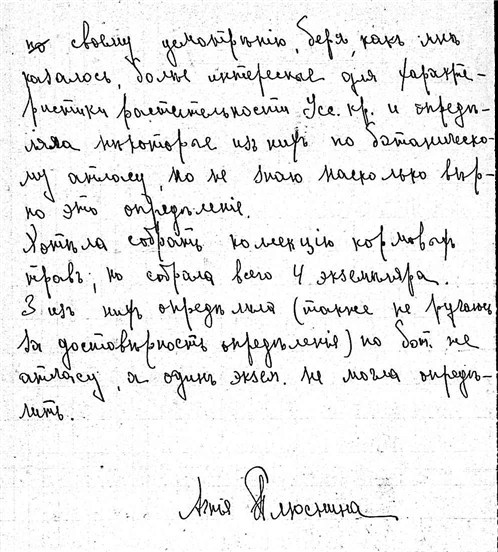 по своему усмотрѣнію, беря, какъ мнѣ
казалось, болѣе интересные для характе-
ристики растительности Усс. кр. и опредѣ-
ляла нѣкоторые изъ нихъ по ботаническо-
му атласу, но не знаю насколько вѣр-
но это опредѣленіе.
Хотѣла собрать коллекцію кормовыхъ
травъ, но собрала всего 4 экземпляра.
3 изъ нихъ опредѣлила (также не ручаюсь
за достовѣрность опредѣленія) по бот. же
атласу, а одинъ экзем. не могла опредѣ-
лить.
Агнія Плюснина